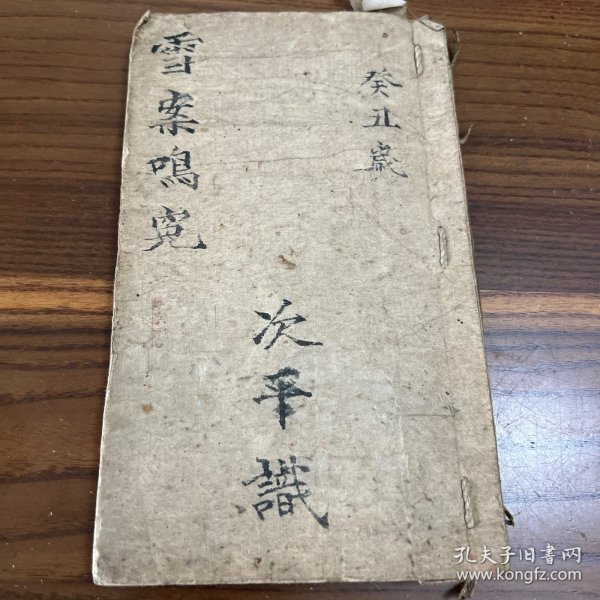 癸丑歲
雪案鳴寃
次平識
孔夫子旧书网
www.kongfz.com